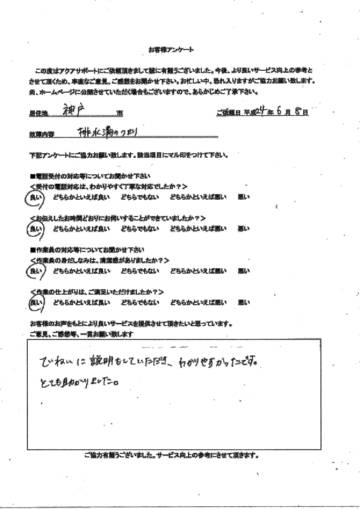 お客様アンケート
この度はアクアサポートにご依頼頂きまして誠に有難うございました。今後、より良いサービス向上の参考と
させて頂くため、率直なご意見、ご感想をお聞かせ下さい。お忙しい中、恐れ入りますがご協力お願い致します。
尚、ホームページに公開させていただく場合もございますので、あらかじめご了承下さい。
居住地 神戸 市 ご依頼日 平成24年 6月 8日
故障内容 排水溝のつまり
下記アンケートにご協力お願い致します。該当項目にマル印をつけて下さい。
■電話受付の対応等についてお聞かせ下さい
<受付の電話対応は、わかりやすく丁寧な対応でしたか?>
良い どちらかといえば良い どちらでもない どちらかといえば悪い 悪い
<お伝えしたお時間どおりにお伺いすることができていましたか?>
良い どちらかといえば良い どちらでもない どちらかといえば悪い 悪い
■作業員の対応等についてお聞かせ下さい
<作業員の身だしなみは、清潔感がありましたか?>
良い どちらかといえば良い どちらでもない どちらかといえば悪い 悪い
<作業の仕上がりは、ご満足いただけましたか?>
良い どちらかといえば良い どちらでもない どちらかといえば悪い 悪い
お客様のお声をもとにより良いサービスを提供させて頂きたいと思っています。
ご意見、ご感想等、一筆お願い致します
ていねいに説明もしていただき、わかりやすかったです。
とても助かりました。
ご協力有難うございました。サービス向上の参考にさせて頂きます。